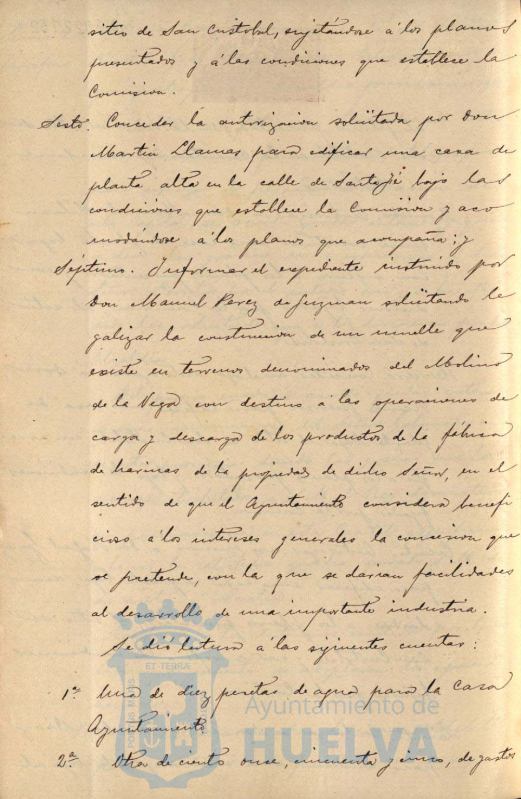 sitio de San Cristobal, sujetándose á los planos
presentados y á las condiciones que establece la
Comision.
Sesto. Conceder la autorizacion solicitada por Don
Martin Llamas para edificar una casa de
planta alta en la calle de Santa Fé bajo las
condiciones que establece la Comision y aco
modándose á los planos que acompaña; y
Séptimo. Informar el expediente instruido por
Don Manuel Perez de Guzman solicitando le
galizar la construccion de un muelle que
existe en terrenos denominados del Molino
de la Vega con destino á las operaciones de
carga y descarga de los productos de la fábrica
de harinas de la propiedad de dicho Señor, en el
sentido de que el Ayuntamiento considera benefi
cioso á los intereses generales la concesion que
se pretende, con la que se darian facilidades
al desarrollo de una importante industria.
Se dió lectura á las siguientes cuentas:
1ª Una de diez pesetas de agua para la Casa
Ayuntamiento.
2ª Otra de ciento once, cincuenta y cinco, de gastos
Ayuntamiento de
HUELVA